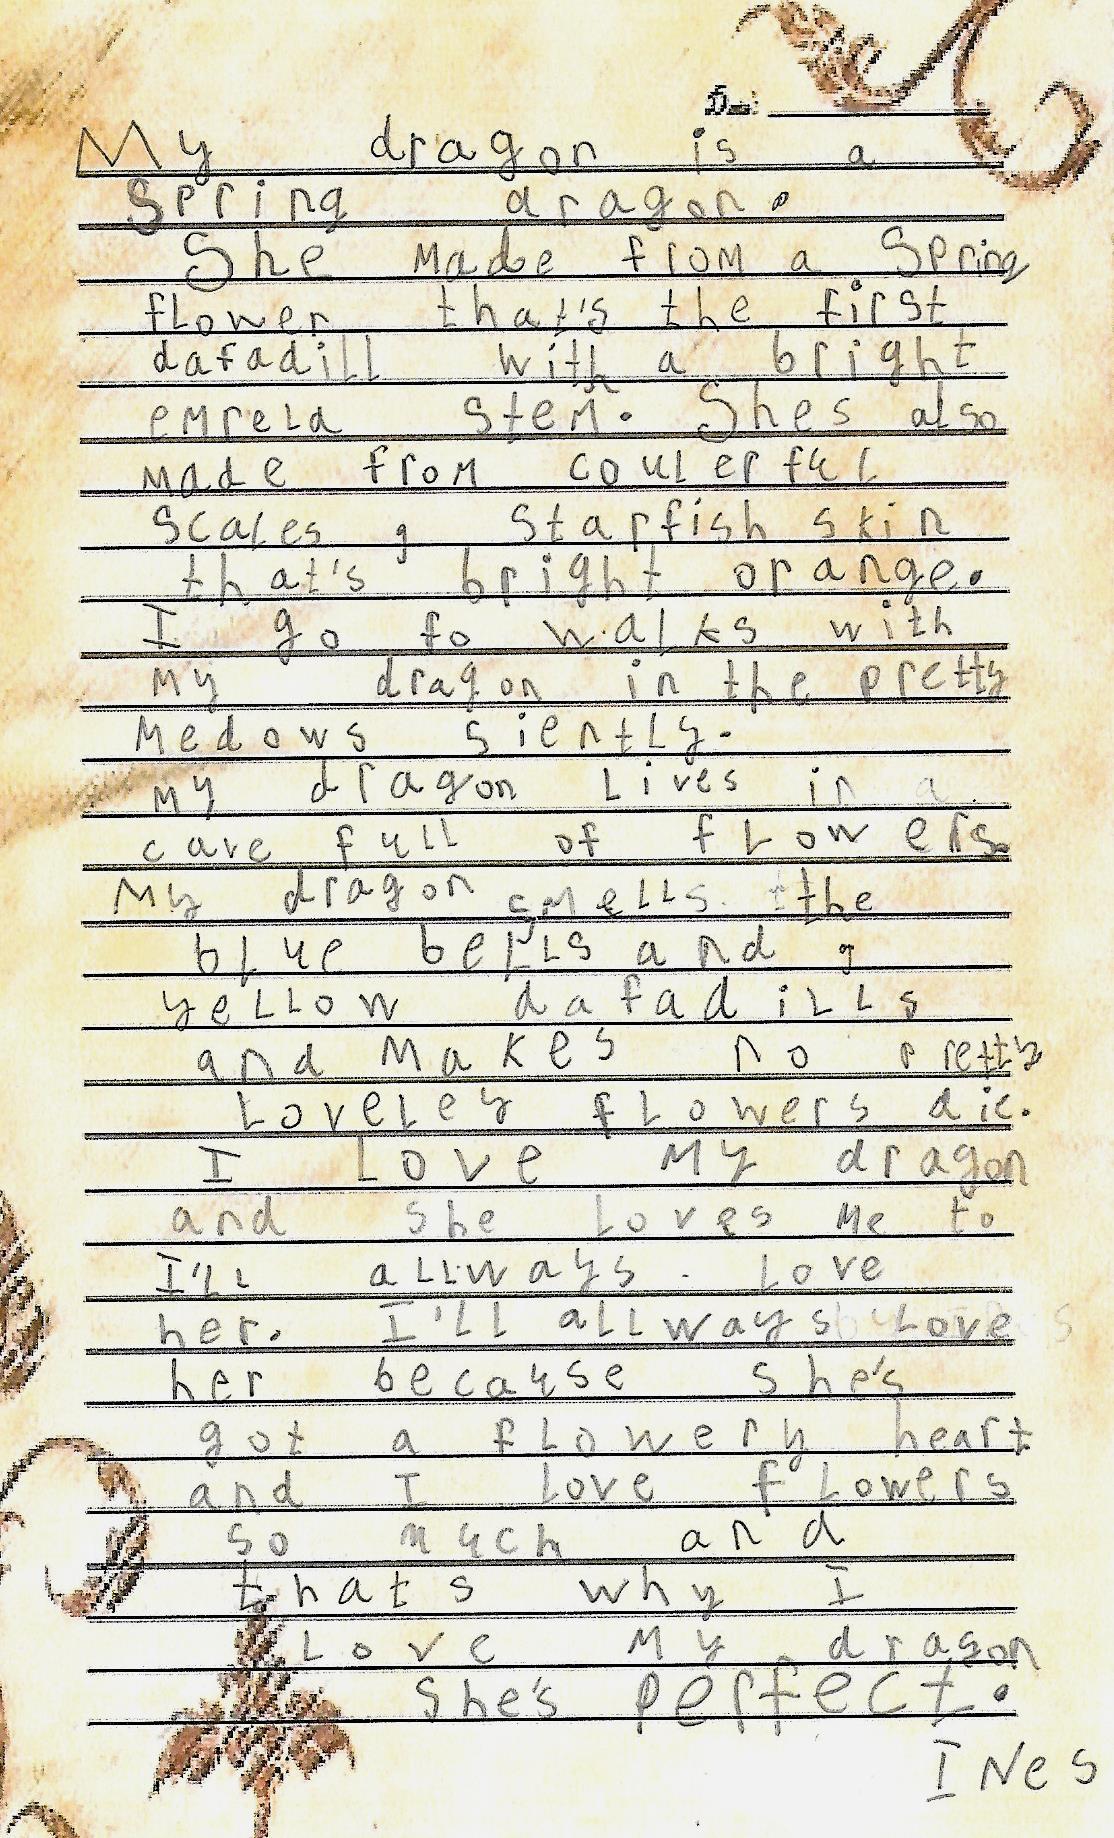 My dragon is a
Spring dragon.
She made from a Spring
flower that's the first
dafadill with a bright
emreld stem. Shes also
made from coulerful
scales , starfish skin
that's bright orange.
I go fo walks with
my dragon in the pretty
medows siently.
my dragon Lives in a
cave full of flowers.
My dragon smells the
blue bells and ,
yellow dafadills
and makes no pretty
Loveley flowers die.
I Love my dragon
and she Loves me to
I'll allways Love
her. I'll allways Love
her because she's
got a flowery heart
and I love flowers
so much and
thats why I
Love my dragon
She's perfect.
INes